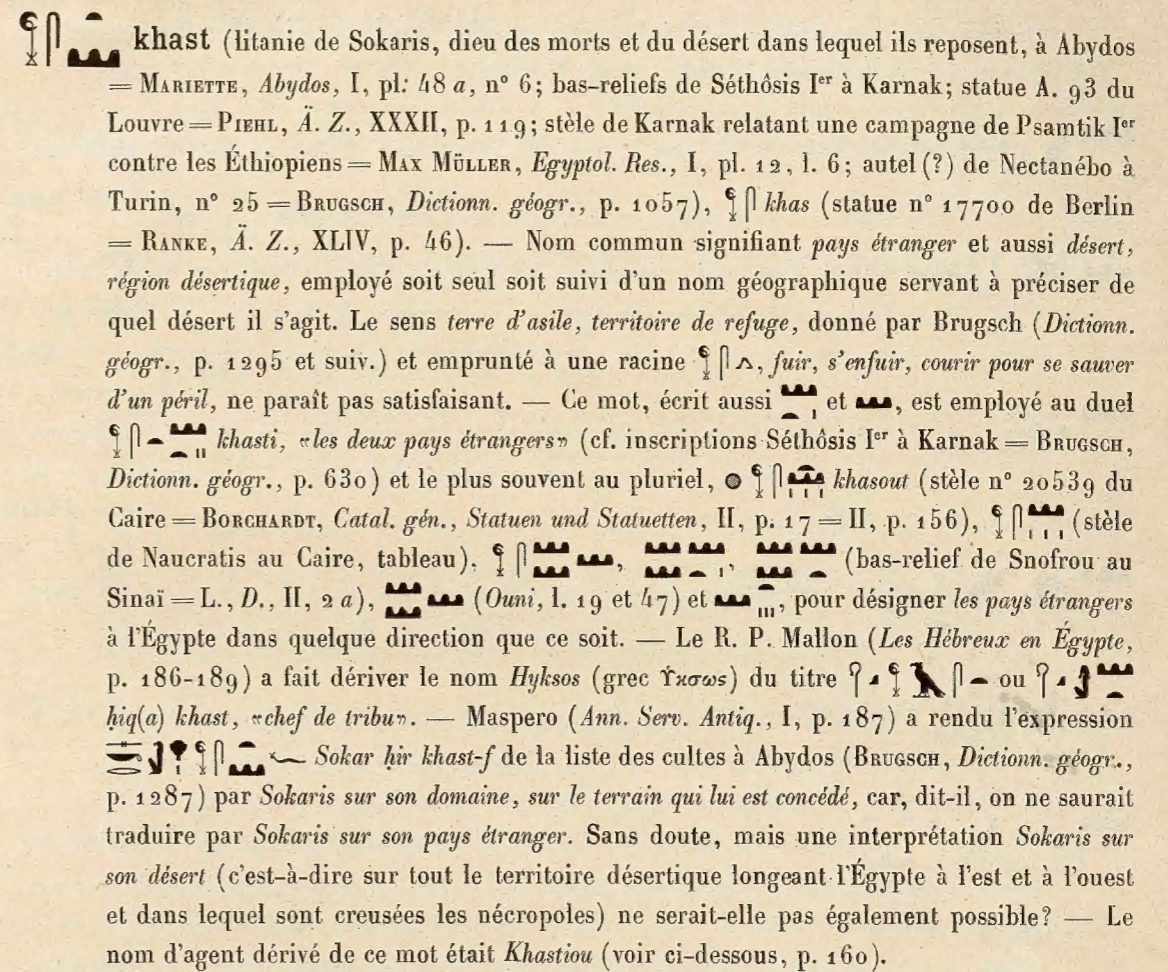 khast (litanie de Sokaris, dieu des morts et du désert dans lequel ils reposent, à Abydos
= MARIETTE, Abydos, I, pl. 48 a, n° 6; bas-reliefs de Séthôsis Ier à Karnak; statue A. 93 du
Louvre = PIEHL, Ä. Z., XXXII, p. 119; stèle de Karnak relatant une campagne de Psamtik Ier
contre les Éthiopiens = MAX MÜLLER, Egyptol. Res., I, pl. 12, l. 6; autel (?) de Nectanébo à
Turin, n° 25 = BRUGSCH, Dictionn. géogr., p. 1057), khas (statue n° 17700 de Berlin
= RANKE, Ä. Z., XLIV, p. 46). — Nom commun signifiant pays étranger et aussi désert,
région désertique, employé soit seul soit suivi d'un nom géographique servant à préciser de
quel désert il s'agit. Le sens terre d'asile, territoire de refuge, donné par Brugsch (Dictionn.
géogr., p. 1295 et suiv.) et emprunté à une racine , fuir, s'enfuir, courir pour se sauver
d'un péril, ne paraît pas satisfaisant. — Ce mot, écrit aussi et , est employé au duel
khasti, «les deux pays étrangers» (cf. inscriptions Séthôsis Ier à Karnak = BRUGSCH,
Dictionn. géogr., p. 630) et le plus souvent au pluriel, khasout (stèle n° 20539 du
Caire = BORCHARDT, Catal. gén., Statuen und Statuetten, II, p. 17 = II, p. 156), (stèle
de Naucratis au Caire, tableau), , , (bas-relief de Snofrou au
Sinaï = L., D., II, 2 a), (Ouni, l. 19 et 47) et , pour désigner les pays étrangers
à l'Égypte dans quelque direction que ce soit. — Le R. P. Mallon (Les Hébreux en Égypte,
p. 186-189) a fait dériver le nom Hyksos (grec Ὑκσως) du titre ou
ḥiq(a) khast, «chef de tribu». — Maspero (Ann. Serv. Antiq., I, p. 187) a rendu l'expression
Sokar ḥir khast-f de la liste des cultes à Abydos (BRUGSCH, Dictionn. géogr.,
p. 1287) par Sokaris sur son domaine, sur le terrain qui lui est concédé, car, dit-il, on ne saurait
traduire par Sokaris sur son pays étranger. Sans doute, mais une interprétation Sokaris sur
son désert (c'est-à-dire sur tout le territoire désertique longeant l'Égypte à l'est et à l'ouest
et dans lequel sont creusées les nécropoles) ne serait-elle pas également possible? — Le
nom d'agent dérivé de ce mot était Khastiou (voir ci-dessous, p. 160).